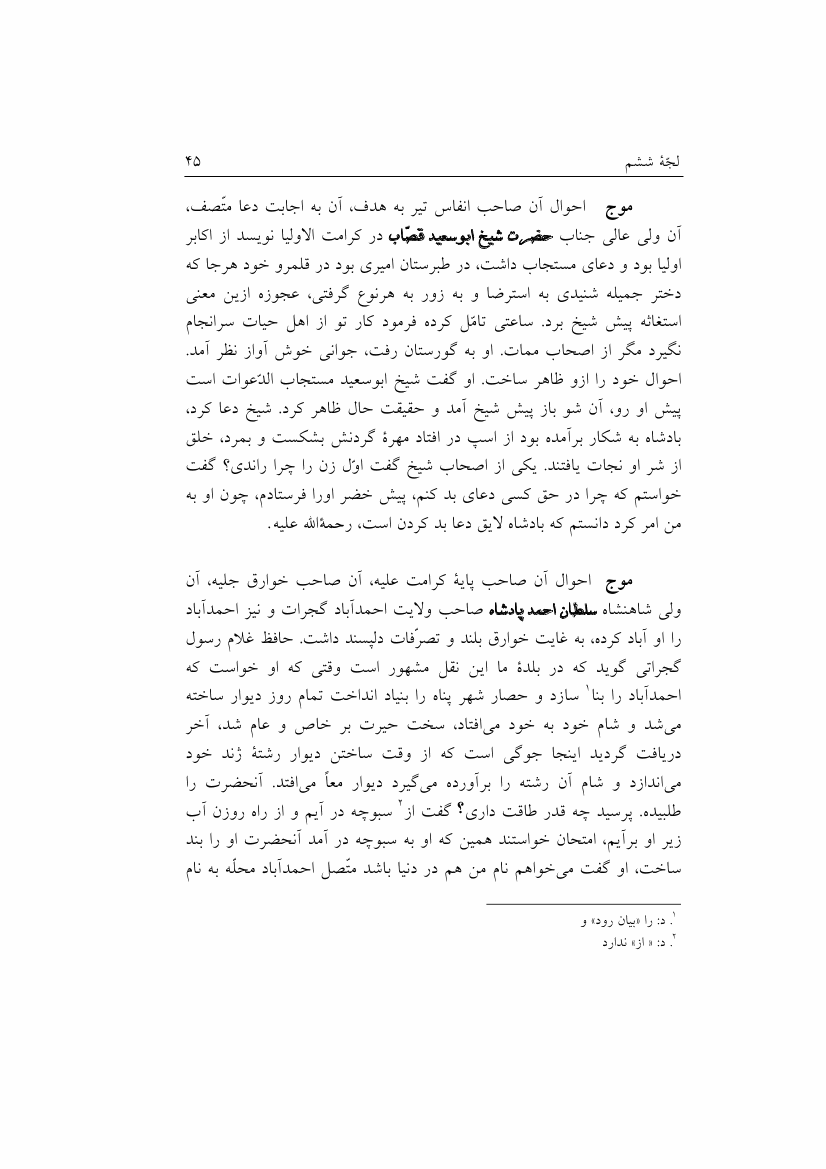 لجّهٔ ششم ۴۵
موج احوال آن صاحب انفاس تیر به هدف، آن به اجابت دعا متّصف،
آن ولی عالی جناب حضرت شیخ ابوسعید قصّاب در کرامت الاولیا نویسد از اکابر
اولیا بود و دعای مستجاب داشت، در طبرستان امیری بود در قلمرو خود هرجا که
دختر جمیله شنیدی به استرضا و به زور به هرنوع گرفتی، عجوزه ازین معنی
استغاثه پیش شیخ برد. ساعتی تامّل کرده فرمود کار تو از اهل حیات سرانجام
نگیرد مگر از اصحاب ممات. او به گورستان رفت، جوانی خوش آواز نظر آمد.
احوال خود را ازو ظاهر ساخت. او گفت شیخ ابوسعید مستجاب الدّعوات است
پیش او رو، آن شو باز پیش شیخ آمد و حقیقت حال ظاهر کرد. شیخ دعا کرد،
بادشاه به شکار برآمده بود از اسپ در افتاد مهرهٔ گردنش بشکست و بمرد، خلق
از شر او نجات یافتند. یکی از اصحاب شیخ گفت اوّل زن را چرا راندی؟ گفت
خواستم که چرا در حق کسی دعای بد کنم، پیش خضر اورا فرستادم، چون او به
من امر کرد دانستم که بادشاه لایق دعا بد کردن است، رحمةالله علیه.
موج احوال آن صاحب پایهٔ کرامت علیه، آن صاحب خوارق جلیه، آن
ولی شاهنشاه سلطان احمد پادشاه صاحب ولایت احمدآباد گجرات و نیز احمدآباد
را او آباد کرده، به غایت خوارق بلند و تصرّفات دلپسند داشت. حافظ غلام رسول
گجراتی گوید که در بلدهٔ ما این نقل مشهور است وقتی که او خواست که
احمدآباد را بنا۱ سازد و حصار شهر پناه را بنیاد انداخت تمام روز دیوار ساخته
می‌شد و شام خود به خود می‌افتاد، سخت حیرت بر خاص و عام شد، آخر
دریافت گردید اینجا جوگی است که از وقت ساختن دیوار رشتهٔ ژند خود
می‌اندازد و شام آن رشته را برآورده می‌گیرد دیوار معاً می‌افتد. آنحضرت را
طلبیده. پرسید چه قدر طاقت داری؟ گفت از۲ سبوچه در آیم و از راه روزن آب
زیر او برآیم، امتحان خواستند همین که او به سبوچه در آمد آنحضرت او را بند
ساخت، او گفت می‌خواهم نام من هم در دنیا باشد متّصل احمدآباد محلّه به نام
۱. د: را «بیان رود» و
۲. د: « از» ندارد